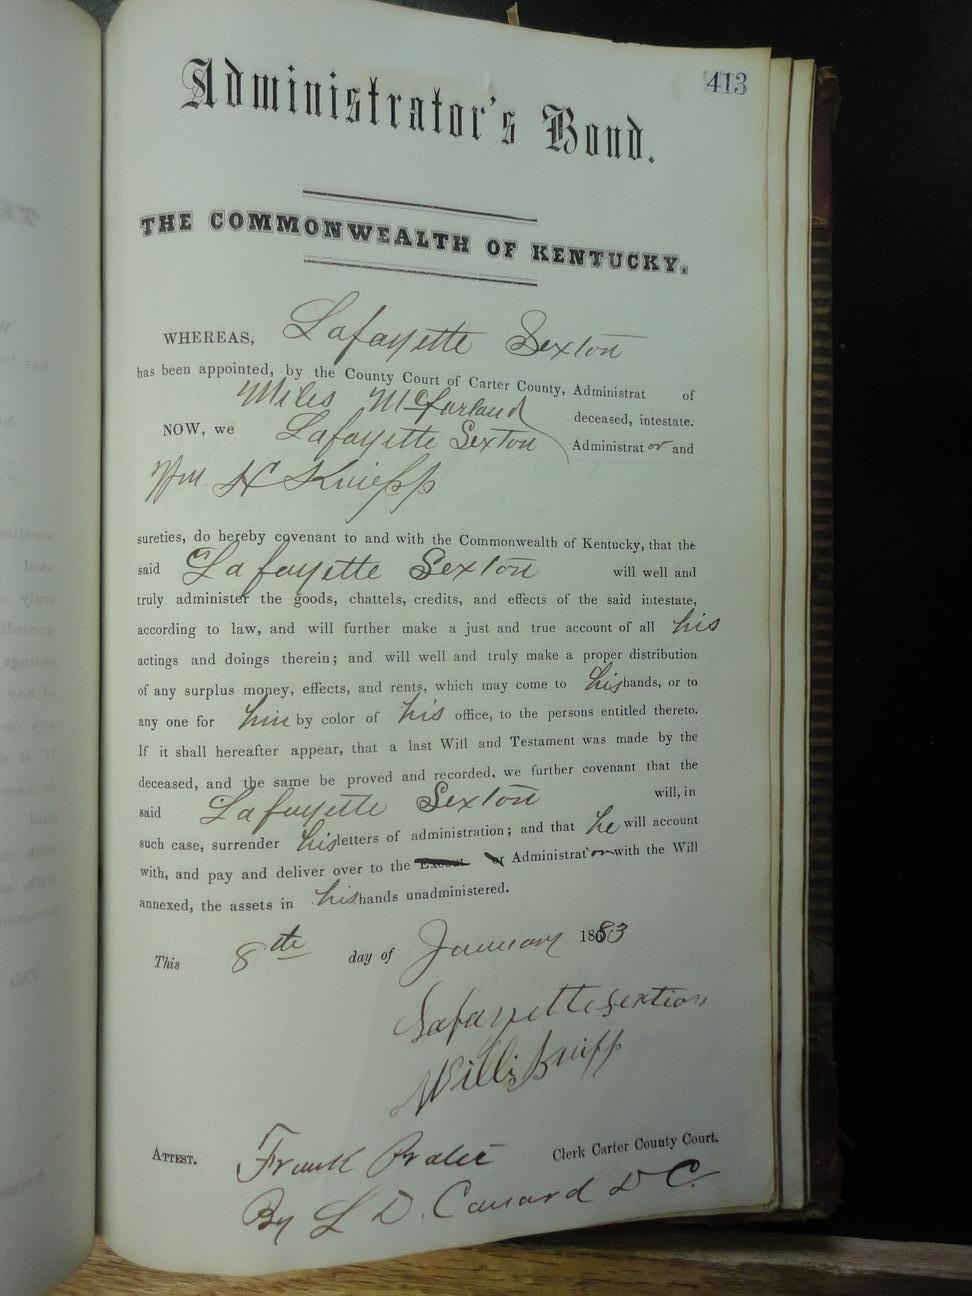 413
Administrator's Bond.
THE COMMONWEALTH OF KENTUCKY.
WHEREAS, Lafayette Sexton
has been appointed, by the County Court of Carter County, Administrat of
Miles McFarland deceased, intestate.
NOW, we Lafayette Sexton Administrator and
Wm H Knipp
sureties, do hereby covenant to and with the Commonwealth of Kentucky, that the
said Lafayette Sexton will well and
truly administer the goods, chattels, credits, and effects of the said intestate,
according to law, and will further make a just and true account of all his
actings and doings therein; and will well and truly make a proper distribution
of any surplus money, effects, and rents, which may come to his hands, or to
any one for him by color of his office, to the persons entitled thereto.
If it shall hereafter appear, that a last Will and Testament was made by the
deceased, and the same be proved and recorded, we further covenant that the
said Lafayette Sexton will, in
such case, surrender his letters of administration; and that he will account
with, and pay and deliver over to the Execut or Administrator with the Will
annexed, the assets in his hands unadministered.
This 8th day of January 1883
Lafayette Sextion
Willi Knipp
ATTEST. Frank Prater Clerk Carter County Court.
By L D. Canard D C.